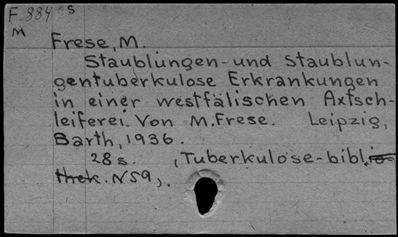 F.884 S
M
Frese, M.
Staublungen- und Staublun-
gentuberkulose Erkrankungen
in einer westfälischen Axtsch-
leiferei. Von M. Frese. Leipzig,
Barth, 1936.
28 s. (Tuberkulose-biblio
thek. N59).